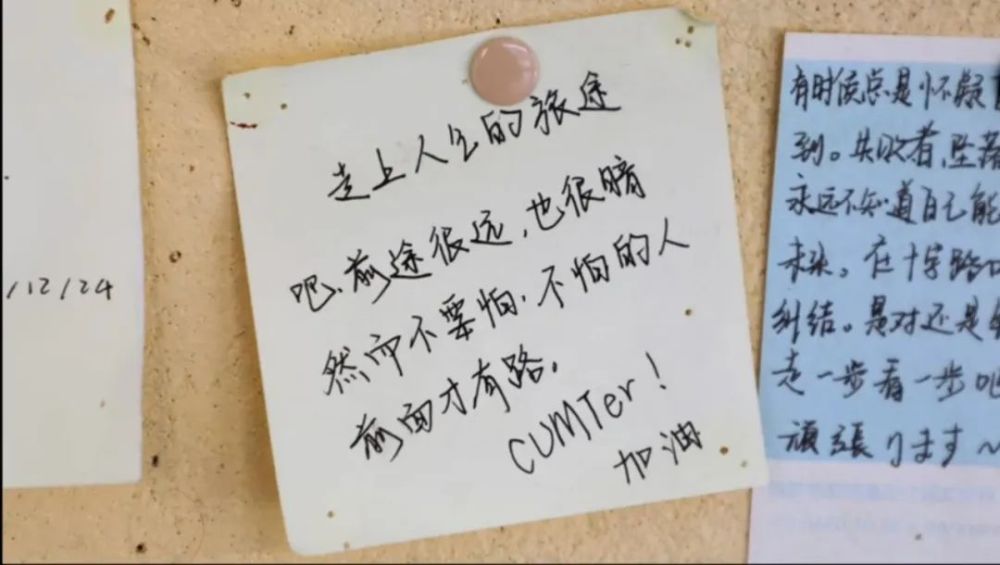 /12/24
走上人生的旅途
吧、前途很远,也很暗
然而不要怕.不怕的人
前面才有路。
CUMTer!
加油
有时候总是怀疑
到。失败者,坠落
永远不知道自己能
未来。在十字路口
纠结。是对还是
走一步看一步吧
頑張ります~